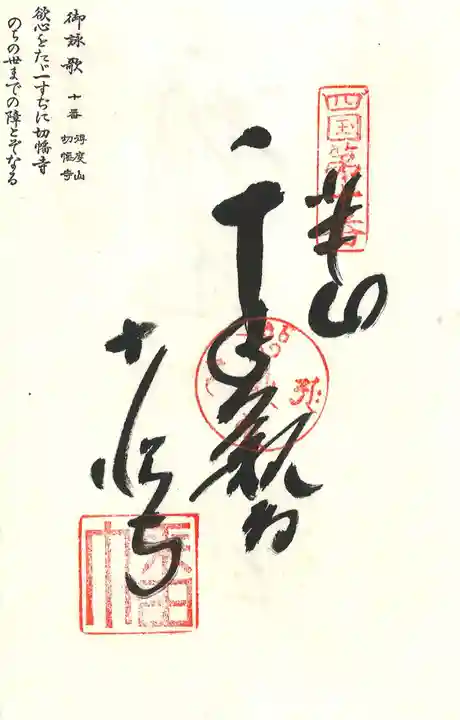 四国第十番
千手観音
切幡寺
御詠歌 十番 得度山
切幡寺
欲心をたゞ一すぢに切幡寺
のちの世までの障とぞなる